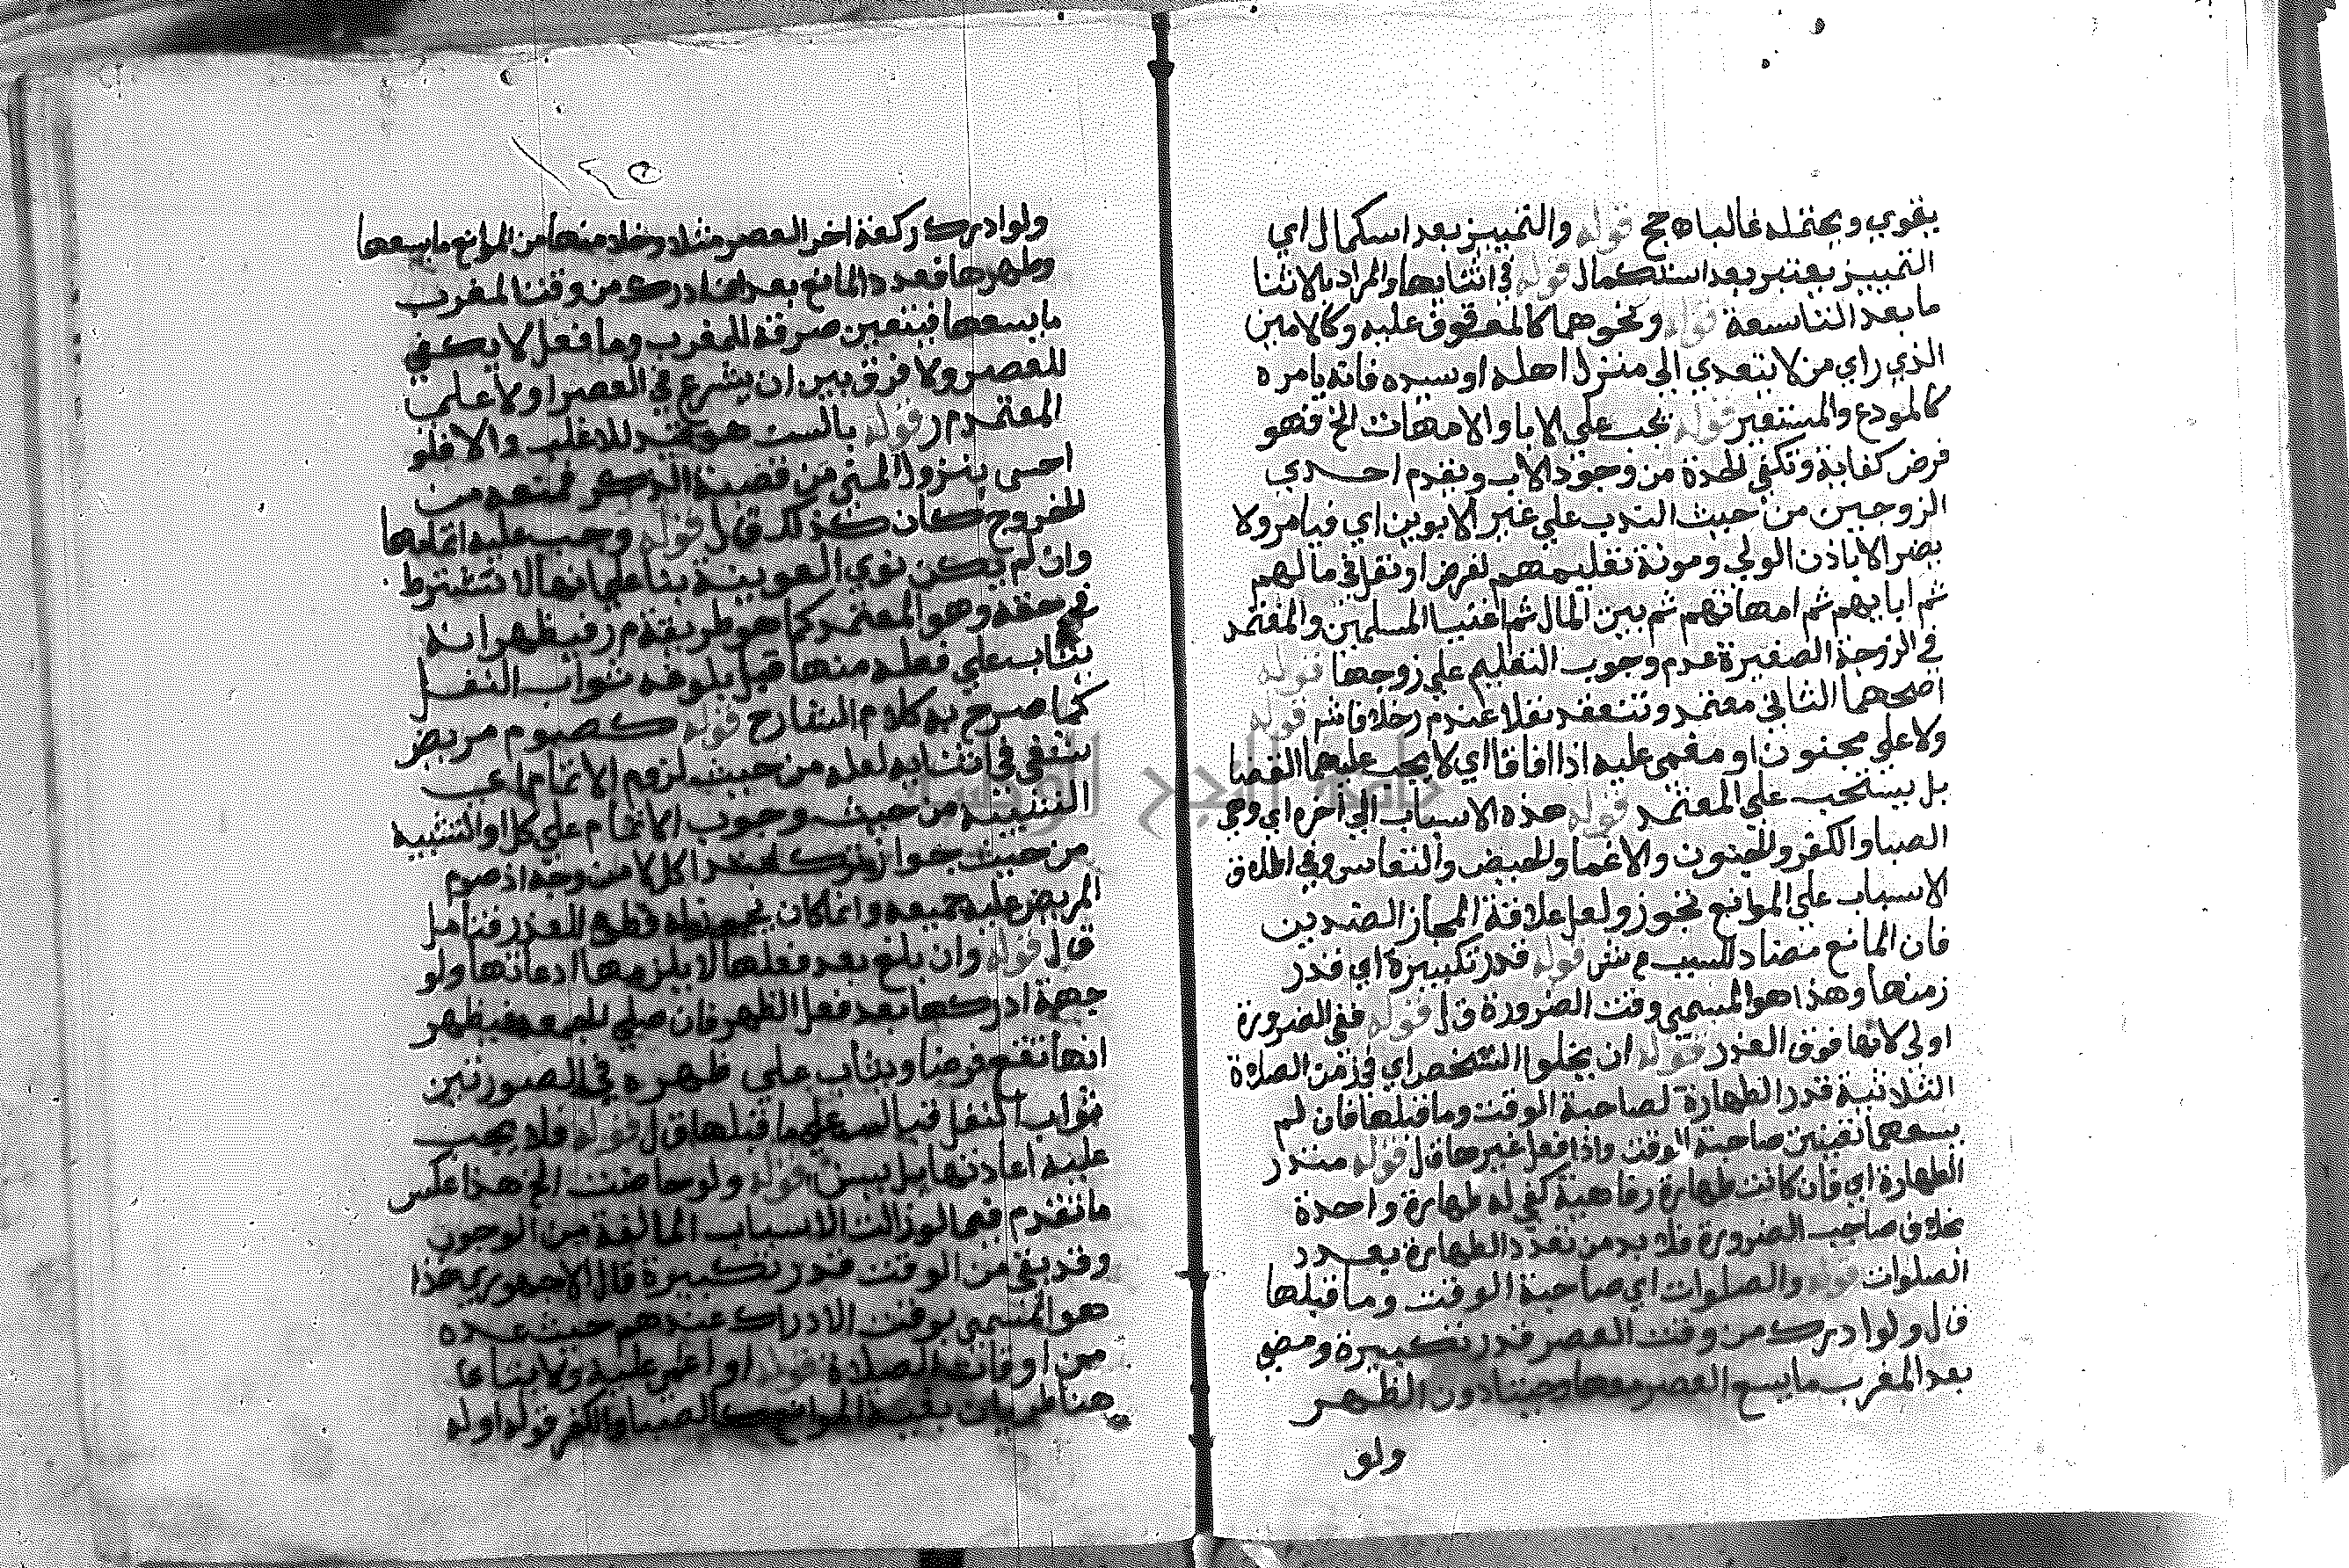 يقوي ويحتمله غالبا ه حج قوله والتمييز بعد استكمال اي
التمييز يعتبر بعد استكمال قوله في اثنايها والمراد بالاثنا
ما بعد التاسعة قوله ونحوهما كالملتقوق عليه وكالامين
الذي راي من لا يتعدي الي منزل اهله او سيده فانه يامره
كالمودع والمستعير قوله يجب علي الابا والامهات الخ فهو
فرض كفاية وتكفي الجدة من وجود الاب وتقدم احدي
الزوجين من حيث الندب علي غير الابوين اي فيامر ولا
يضر الا باذن الولي ومونة تعليمهم لفرض او نفل في مالهم
ثم ابايهم ثم امهاتهم ثم بين المال ثم اغنيا المسلمين والمعتمد
في الزوجة الصغيرة عدم وجوب التعليم علي زوجها قوله
اصحهما الثاني معتمد وتنعقد نفلا عند م ر خلافا شر قوله
ولا علي مجنون او مغمي عليه اذا افاقا اي لا يجب عليهما القضا
بل يستحب علي المعتمد قوله هذه الاسباب الي اخره اي وهي
الصبا والكفر والجنون والاغما والحيض والنفاس وفي اطلاق
الاسباب علي الموانع تجوز ولعل علاقة المجاز الضدين
فان المانع مضاد للسبب م ش قوله قدر تكبيرة اي قدر
زمنها وهذا هو المسمي وقت الضرورة ق ل قوله ففي الضرورة
اولي لانها فوق العذر قوله ان يخلوا الشخص اي في زمن الصلاة
الثلاثية قدر الطهارة لصاحبة الوقت وما قبلها فان لم
يسعهما تعين صاحبة الوقت واذا فعل غيرها ق ل قوله منذر
الطهارة اي فان كانت طهارة رفاهية كفي له طهارة واحدة
بخلاف صاحب الضرورة فلا بد من تعدد الطهارة بعدد
الصلوات قوله والصلوات اي صاحبة الوقت وما قبلها
قال ولو ادرك من وقت العصر قدر تكبيرة ومضي
بعد المغرب ما يسع العصر معها وجبتا دون الظهر
ولو
١٢٥
ولو ادرك ركعة اخر العصر مثلا وخلا منها من الموانع ما يسعها
وطهرها فعدد المانع بعد ان ادرك من وقت المغرب
ما يسعها فيتعين صرفه للمغرب وما فعل لا يكفي
للعصر ولا فرق بين ان يشرع في العصر او لا علي
المعتمد م ر قوله بالسن هو قيد للاغلب والا فلو
احس بنزول المني من قصبة الذكر فمنعه من
الخروج كان كذلك ق ل قوله وجب عليه اتمامها
وان لم يكن نوي الفرضية بنا علي انها لا تشترط
في حقه وهو المعتمد كما هو طريقة م ر فيظهر انه
يثاب علي فعله منها قبل بلوغه ثواب النفل
كما صرح به كلام الشارح قوله كصوم مريض
شفي في اثنايه لعله من حيث لزوم الاتمام
التشبيه من حيث وجوب الاتمام علي كل او التشبيه
من حيث جواز اذ صوم
المريض عليه جميعه وانما كان يجوز له قطعه للعذر فتامل
ق ل قوله وان بلغ بعد فعلها لا يلزمها اعادتها ولو
جمعة ادركها بعد فعل الظهر فان صلي الجمعة فيظهر
انها تقع فرضا ويثاب علي ظهره في الصورتين
ثواب النفل علي ما قبلها ق ل قوله فلا يجب
عليه اعادتها بل يسن قوله ولو حاضت الخ هذا عكس
ما تقدم فيما لو زالت الاسباب المانعة من الوجوب
وقد بقي من الوقت قدر تكبيرة قال الاجهوري هذا
هو المسمي بوقت الادراك عندهم حيث عده
من اوقات الصلاة قوله او اغمي عليه ولا يتاتي
هنا طريان بقية الموانع كالصبا والكفر قوله اوله